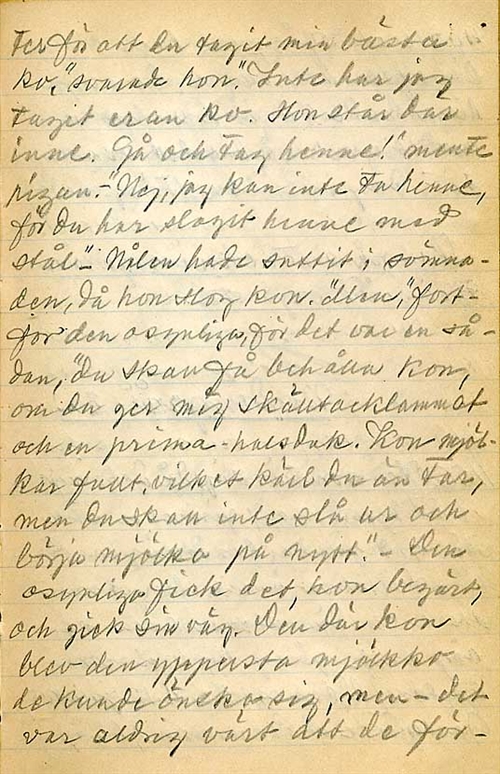 ter för att du tagit min bästa
ko," svarade hon." Inte har jag
tagit eran ko. Hon står där
inne. Gå och tag henne!" mente
pigan.- "Nej, jag kan inte ta henne,
för du har slagit henne med
stål."- Nålen hade suttit i sömna-
den, då hon slog kon. "Men", fort-
for den osynliga, för det var en så-
dan, "du skall få behålla kon,
om du ger mig skälltacklammet
och en prima halsduk. Kon mjöl-
kar fullt, vilket kärl du än tar,
men du skall inte slå ur och
börja mjölka på nytt."- Den
osynliga fick det, hon begärt,
och gick sin väg. Den där kon
blev den ypperста mjölkko
de kunde önska sig, men - det
var aldrig värt att de för-